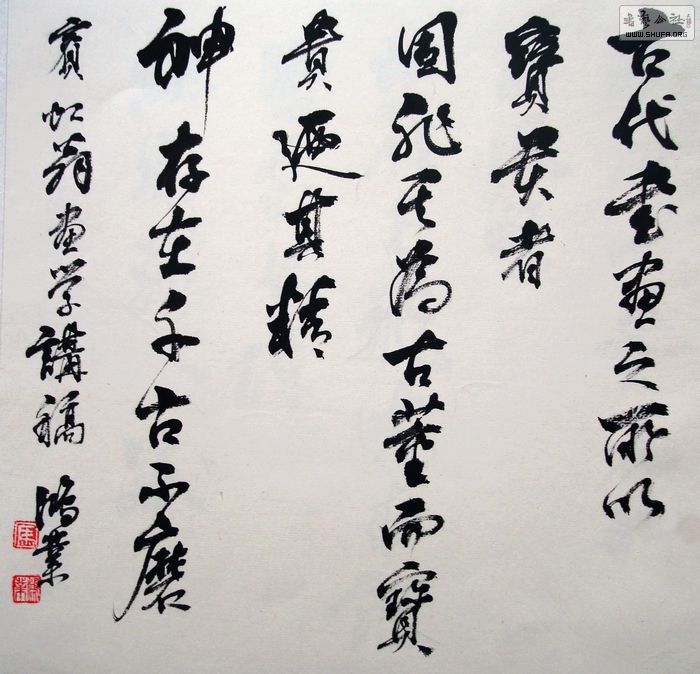 古代書畫之所以
寶貴者
固非其為古董而寶
貴迺其精
神存在千古不磨
賓虹翁畫学講稿 鴻業
書藝公社
WWW.SHUFA.ORG